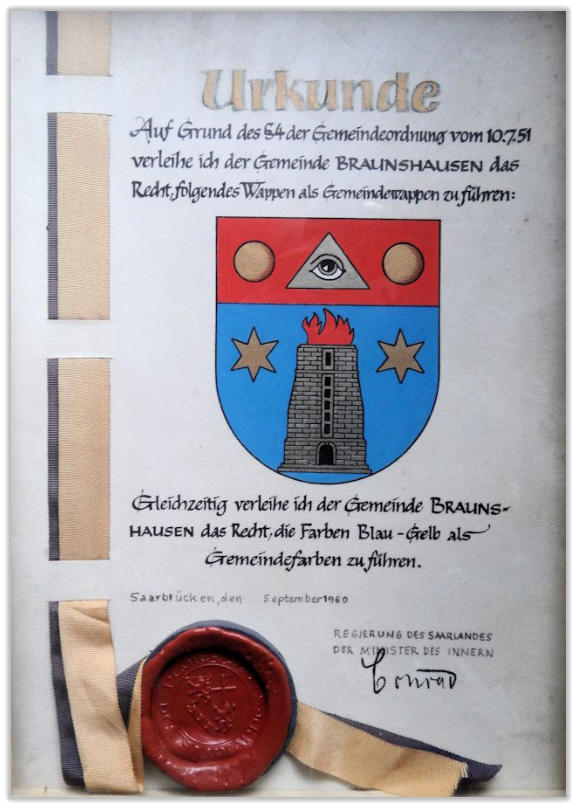 Urkunde
Auf Grund des §4 der Gemeindeordnung vom 10.7.51
verleihe ich der Gemeinde BRAUNSHAUSEN das
Recht, folgendes Wappen als Gemeindewappen zu führen:
Gleichzeitig verleihe ich der Gemeinde BRAUNS-
HAUSEN das Recht, die Farben Blau-Gelb als
Gemeindefarben zu führen.
Saarbrücken, den September 1960
REGIERUNG DES SAARLANDES
DER MINISTER DES INNERN
Conrad